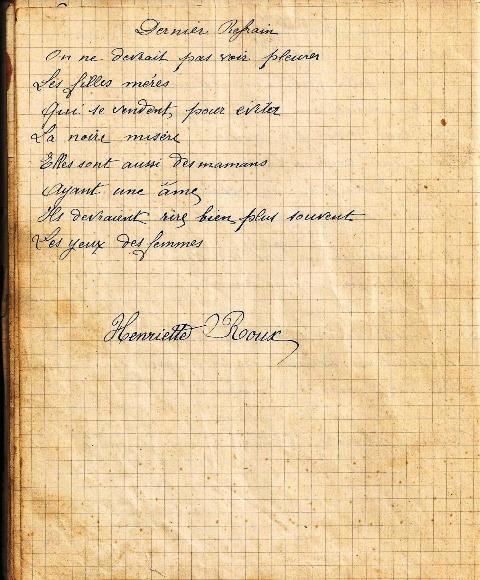 Dernier Refrain
On ne devrait pas voir pleurer
Les filles mères
Qui se vendent, pour eviter
La noire misère
Elles sont aussi des mamans
Ayant une âme
Ils devraient rire bien plus souvent
Les yeux des femmes
Henriette Roux